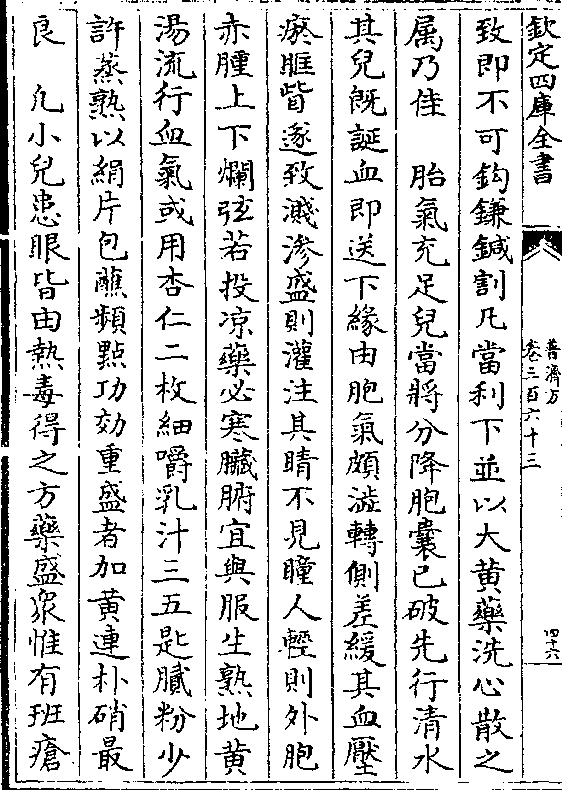 欽定四庫全書
普濟方
卷三百六十三
四十六
致即不可鈎鎌鍼割凡當利下並以大黄藥洗心散之
属乃佳　胎氣充足兒當將分降胞囊已破先行清水
其兒旣誕血即送下緣由胞氣頗澁轉側差緩其血壓
瘀眶眥遂致濺滲盛則灌注其睛不見瞳人輕則外胞
赤腫上下爛弦若投凉藥必寒臟腑宜與服生熟地黄
湯流行血氣或用杏仁二枚細嚼乳汁三五匙膩粉少
許蒸熟以絹片包蘸頻點功効重盛者加黄連朴硝最
良　凡小兒患眼皆由熱毒得之方藥盛衆惟有班瘡